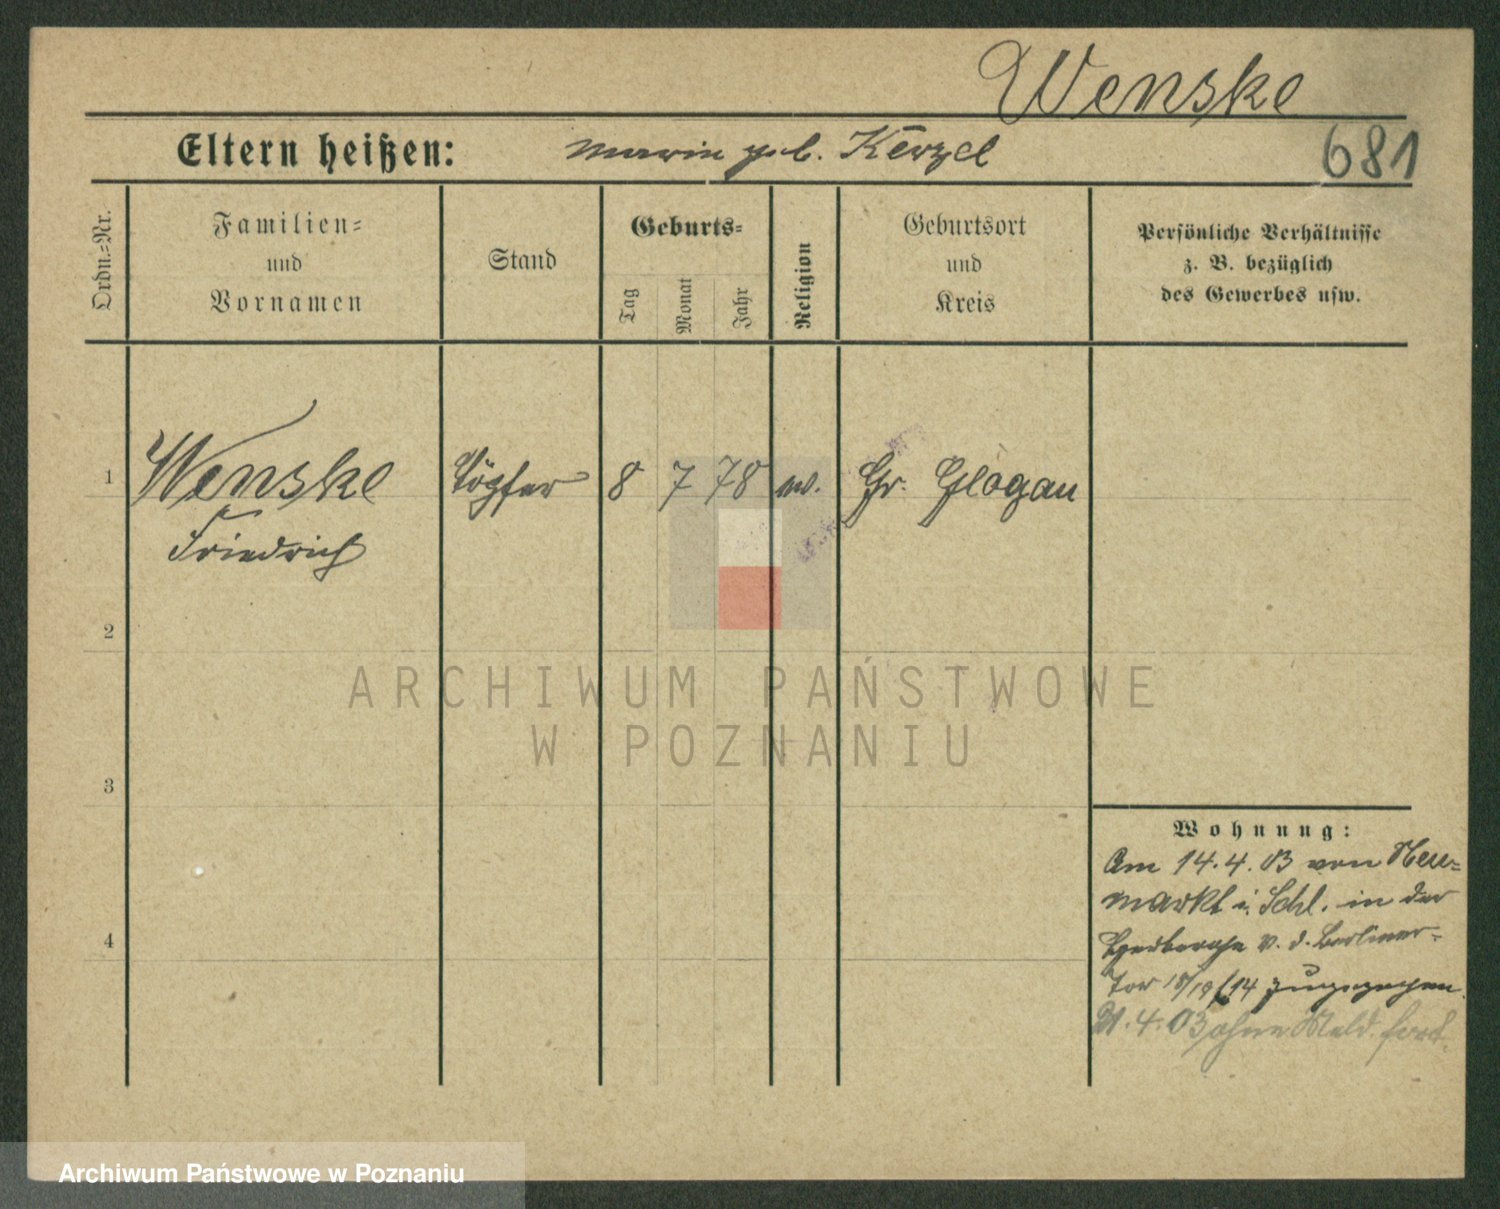 Wenske
Eltern heißen: Marie geb. Kerzel
681
Ordn.=Nr.
Familien=
und
Vornamen
Stand
Geburts=
Tag
Monat
Jahr
Religion
Geburtsort
und
Kreis
Persönliche Verhältnisse
z. B. bezüglich
des Gewerbes usw.
1 Wenske Töpfer 8 7 78 ev. Gr. Glogau
Friedrich
2
ARCHIWUM PAŃSTWOWE
W POZNANIU
3
Wohnung:
Am 14.4.03 von Neu=
markt i. Schl. in der
v. d. Berliner=
Tor zugezogen
4.03 ohne Meld. fort.
4
Archiwum Państwowe w Poznaniu